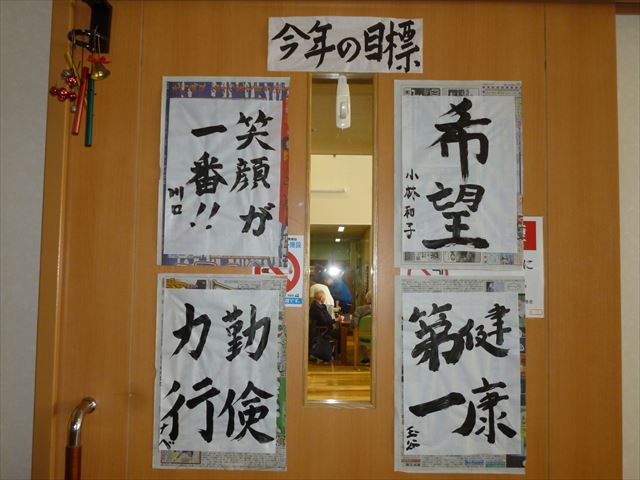 今年の目標
希望
小林和子
笑顔が
一番!!
川口
健康
第一
玉谷
勤倹
力行